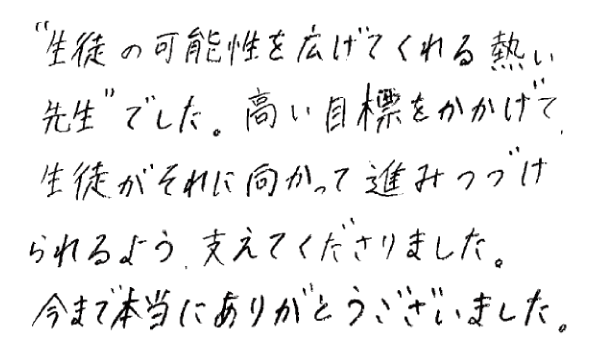 “生徒の可能性を広げてくれる熱い
先生”でした。高い目標をかかげて、
生徒がそれに向かって進みつづけ
られるよう、支えてくださりました。
今まで本当にありがとうございました。